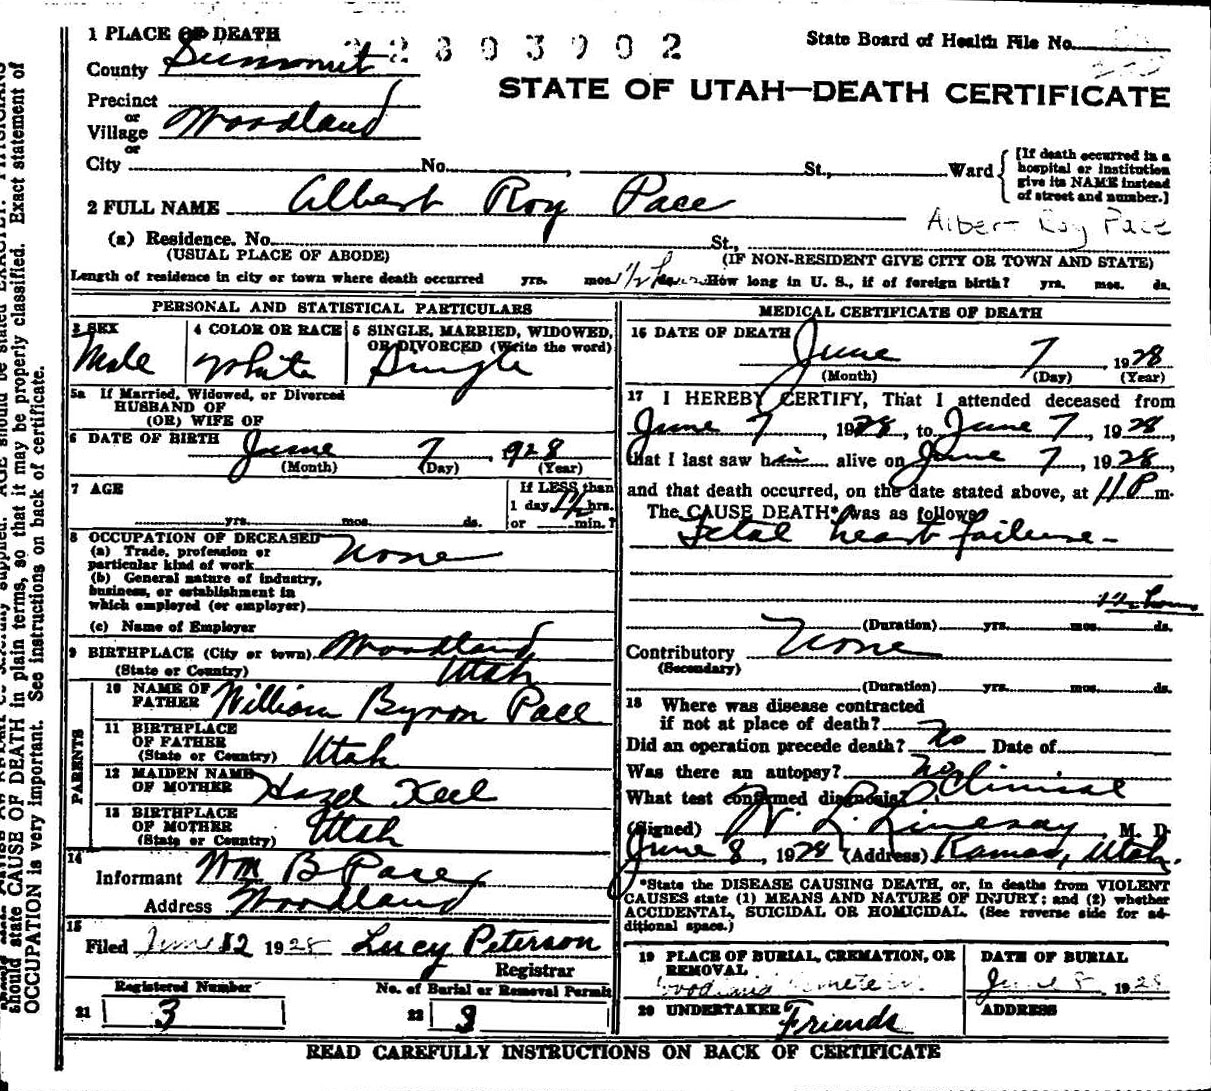 1 PLACE OF DEATH
State Board of Health File No.
County Summit
STATE OF UTAH—DEATH CERTIFICATE
Precinct
or
Village Woodland
or
City No. , St., Ward
[If death occurred in a hospital or institution give its NAME instead of street and number.]
2 FULL NAME Albert Roy Pace
Albert Roy Pace
(a) Residence. No. St.,
(USUAL PLACE OF ABODE) (IF NON-RESIDENT GIVE CITY OR TOWN AND STATE)
Length of residence in city or town where death occurred yrs. mos. 1 1/2 hours ds. How long in U. S., if of foreign birth? yrs. mos. ds.
PERSONAL AND STATISTICAL PARTICULARS
3 SEX Male
4 COLOR OR RACE White
5 SINGLE, MARRIED, WIDOWED, OR DIVORCED (Write the word) Single
5a If Married, Widowed, or Divorced
HUSBAND OF
(OR) WIFE OF
6 DATE OF BIRTH June 7, 1928
(Month) (Day) (Year)
7 AGE yrs. mos. ds.
If LESS than
1 day 1 1/2 hrs.
or min.?
8 OCCUPATION OF DECEASED
(a) Trade, profession or
particular kind of work None
(b) General nature of industry,
business, or establishment in
which employed (or employer)
(c) Name of Employer
9 BIRTHPLACE (City or town) Woodland
(State or Country) Utah
PARENTS
10 NAME OF FATHER William Byron Pace
11 BIRTHPLACE OF FATHER (State or Country) Utah
12 MAIDEN NAME OF MOTHER Hazel Keel
13 BIRTHPLACE OF MOTHER (State or Country) Utah
14
Informant Wm B Pace
Address Woodland
15
Filed June 12 1928 Lucy Peterson
Registrar
Registered Number No. of Burial or Removal Permit
21 3 22 3
MEDICAL CERTIFICATE OF DEATH
16 DATE OF DEATH June 7 1928
(Month) (Day) (Year)
17 I HEREBY CERTIFY, That I attended deceased from
June 7, 1928, to June 7, 1928,
that I last saw him alive on June 7, 1928,
and that death occurred, on the date stated above, at 11 P m.
The CAUSE DEATH* was as follows
Fetal heart failure—
1 1/2 hours
(Duration) yrs. mos. ds.
Contributory None
(Secondary)
(Duration) yrs. mos. ds.
18 Where was disease contracted
if not at place of death?
Did an operation precede death? No Date of
Was there an autopsy? No
What test confirmed diagnosis? Clinical
(Signed) W. L. Lindsay, M. D.
June 8, 1928 (Address) Kamas, Utah.
*State the DISEASE CAUSING DEATH, or, in deaths from VIOLENT
CAUSES state (1) MEANS AND NATURE OF INJURY; and (2) whether
ACCIDENTAL, SUICIDAL OR HOMICIDAL. (See reverse side for ad-
ditional space.)
19 PLACE OF BURIAL, CREMATION, OR
REMOVAL
Woodland Cemetery
DATE OF BURIAL
June 8, 1928
20 UNDERTAKER Friends
ADDRESS
READ CAREFULLY INSTRUCTIONS ON BACK OF CERTIFICATE
should state CAUSE OF DEATH in plain terms, so that it may be properly classified. Exact statement of
OCCUPATION is very important. See instructions on back of certificate.